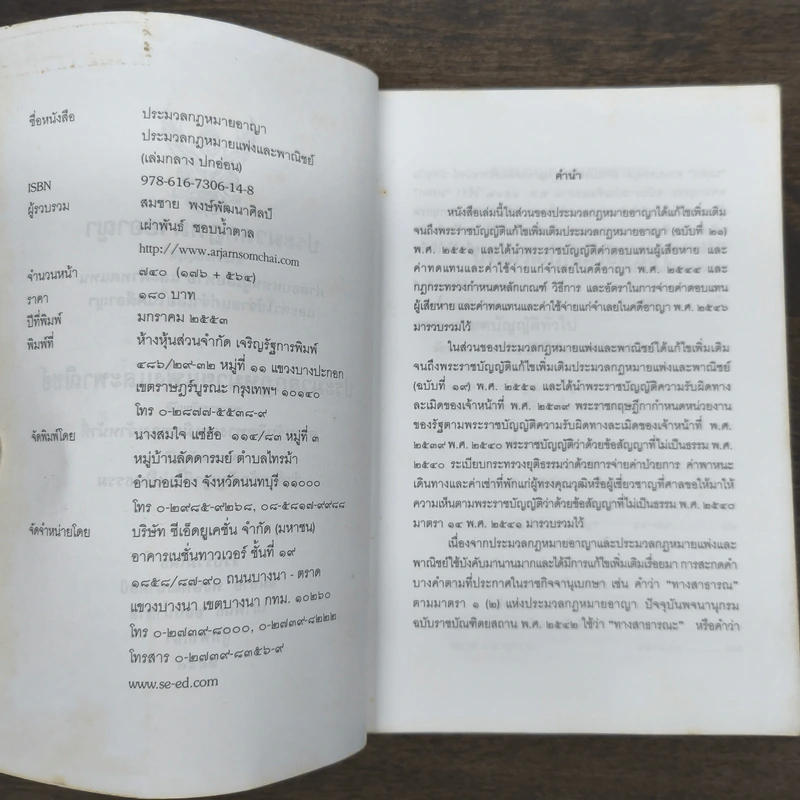 ชื่อหนังสือ ประมวลกฎหมายอาญา
ประมวลกฎหมายแพ่งและพาณิชย์
(เล่มกลาง ปกอ่อน)
ISBN 978-616-7306-14-8
ผู้รวบรวม สมชาย พงษ์พัฒนาศิลป์
เผ่าพันธ์ ชอบน้ำตาล
http://www.arjarnsomchai.com
จำนวนหน้า ๗๔๐ (๑๗๖ + ๕๖๔)
ราคา ๑๘๐ บาท
ปีที่พิมพ์ มกราคม ๒๕๕๓
พิมพ์ที่ ห้างหุ้นส่วนจำกัด เจริญรัฐการพิมพ์
๔๘๖/๒๙-๓๒ หมู่ที่ ๑๑ แขวงบางปะกอก
เขตราษฎร์บูรณะ กรุงเทพฯ ๑๐๑๔๐
โทร ๐-๒๘๗๗-๕๕๓๘-๙
จัดพิมพ์โดย นางสมใจ แซ่ฮ้อ ๑๑๔/๘๓ หมู่ที่ ๓
หมู่บ้านลัดดารมย์ ตำบลไทรม้า
อำเภอเมือง จังหวัดนนทบุรี ๑๑๐๐๐
โทร ๐-๒๙๘๕-๙๒๖๘, ๐๘-๕๘๑๗-๙๙๘๘
จัดจำหน่ายโดย บริษัท ซีเอ็ดยูเคชั่น จำกัด (มหาชน)
อาคารเนชั่นทาวเวอร์ ชั้นที่ ๑๙
๑๘๕๘/๘๗-๙๐ ถนนบางนา - ตราด
แขวงบางนา เขตบางนา กทม. ๑๐๒๖๐
โทร ๐-๒๗๓๙-๘๐๐๐, ๐-๒๗๓๙-๘๒๒๒
โทรสาร ๐-๒๗๓๙-๘๓๕๖-๙
www.se-ed.com
คำนำ
หนังสือเล่มนี้ในส่วนของประมวลกฎหมายอาญาได้แก้ไขเพิ่มเติม
จนถึงพระราชบัญญัติแก้ไขเพิ่มเติมประมวลกฎหมายอาญา (ฉบับที่ ๒๑)
พ.ศ. ๒๕๕๑ และได้นำพระราชบัญญัติค่าตอบแทนผู้เสียหาย และ
ค่าทดแทนและค่าใช้จ่ายแก่จำเลยในคดีอาญา พ.ศ. ๒๕๔๔ และ
กฎกระทรวงกำหนดหลักเกณฑ์ วิธีการ และอัตราในการจ่ายค่าตอบแทน
ผู้เสียหาย และค่าทดแทนและค่าใช้จ่ายแก่จำเลยในคดีอาญา พ.ศ. ๒๕๔๖
มารวบรวมไว้
ในส่วนของประมวลกฎหมายแพ่งและพาณิชย์ได้แก้ไขเพิ่มเติม
จนถึงพระราชบัญญัติแก้ไขเพิ่มเติมประมวลกฎหมายแพ่งและพาณิชย์
(ฉบับที่ ๑๙) พ.ศ. ๒๕๕๑ และได้นำพระราชบัญญัติความรับผิดทาง
ละเมิดของเจ้าหน้าที่ พ.ศ. ๒๕๓๙ พระราชกฤษฎีกากำหนดหน่วยงาน
ของรัฐตามพระราชบัญญัติความรับผิดทางละเมิดของเจ้าหน้าที่ พ.ศ.
๒๕๓๙ พ.ศ. ๒๕๔๐ พระราชบัญญัติว่าด้วยข้อสัญญาที่ไม่เป็นธรรม พ.ศ.
๒๕๔๐ ระเบียบกระทรวงยุติธรรมว่าด้วยการจ่ายค่าป่วยการ ค่าพาหนะ
เดินทางและค่าเช่าที่พักแก่ผู้ทรงคุณวุฒิหรือผู้เชี่ยวชาญที่ศาลขอให้มาให้
ความเห็นตามพระราชบัญญัติว่าด้วยข้อสัญญาที่ไม่เป็นธรรม พ.ศ. ๒๕๔๐
มาตรา ๑๔ พ.ศ. ๒๕๔๑ มารวบรวมไว้
เนื่องจากประมวลกฎหมายอาญาและประมวลกฎหมายแพ่งและ
พาณิชย์ใช้บังคับมานานมากและได้มีการแก้ไขเพิ่มเติมเรื่อยมา การสะกดคำ
บางคำตามที่ประกาศในราชกิจจานุเบกษา เช่น คำว่า "ทางสาธารณ"
ตามมาตรา ๑ (๒) แห่งประมวลกฎหมายอาญา ปัจจุบันพจนานุกรม
ฉบับราชบัณฑิตยสถาน พ.ศ. ๒๕๔๒ ใช้ว่า "ทางสาธารณะ" หรือคำว่า